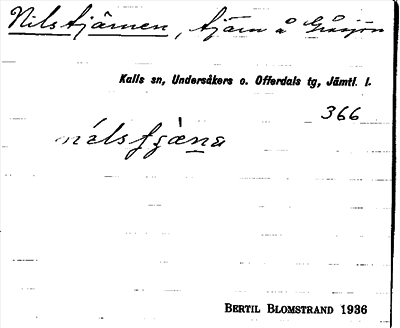 Nilstjärnen, tjärn å Gåsjön
Kalls sn, Undersåkers o. Offerdals tg, Jämtl. l.
366
BERTIL BLOMSTRAND 1936